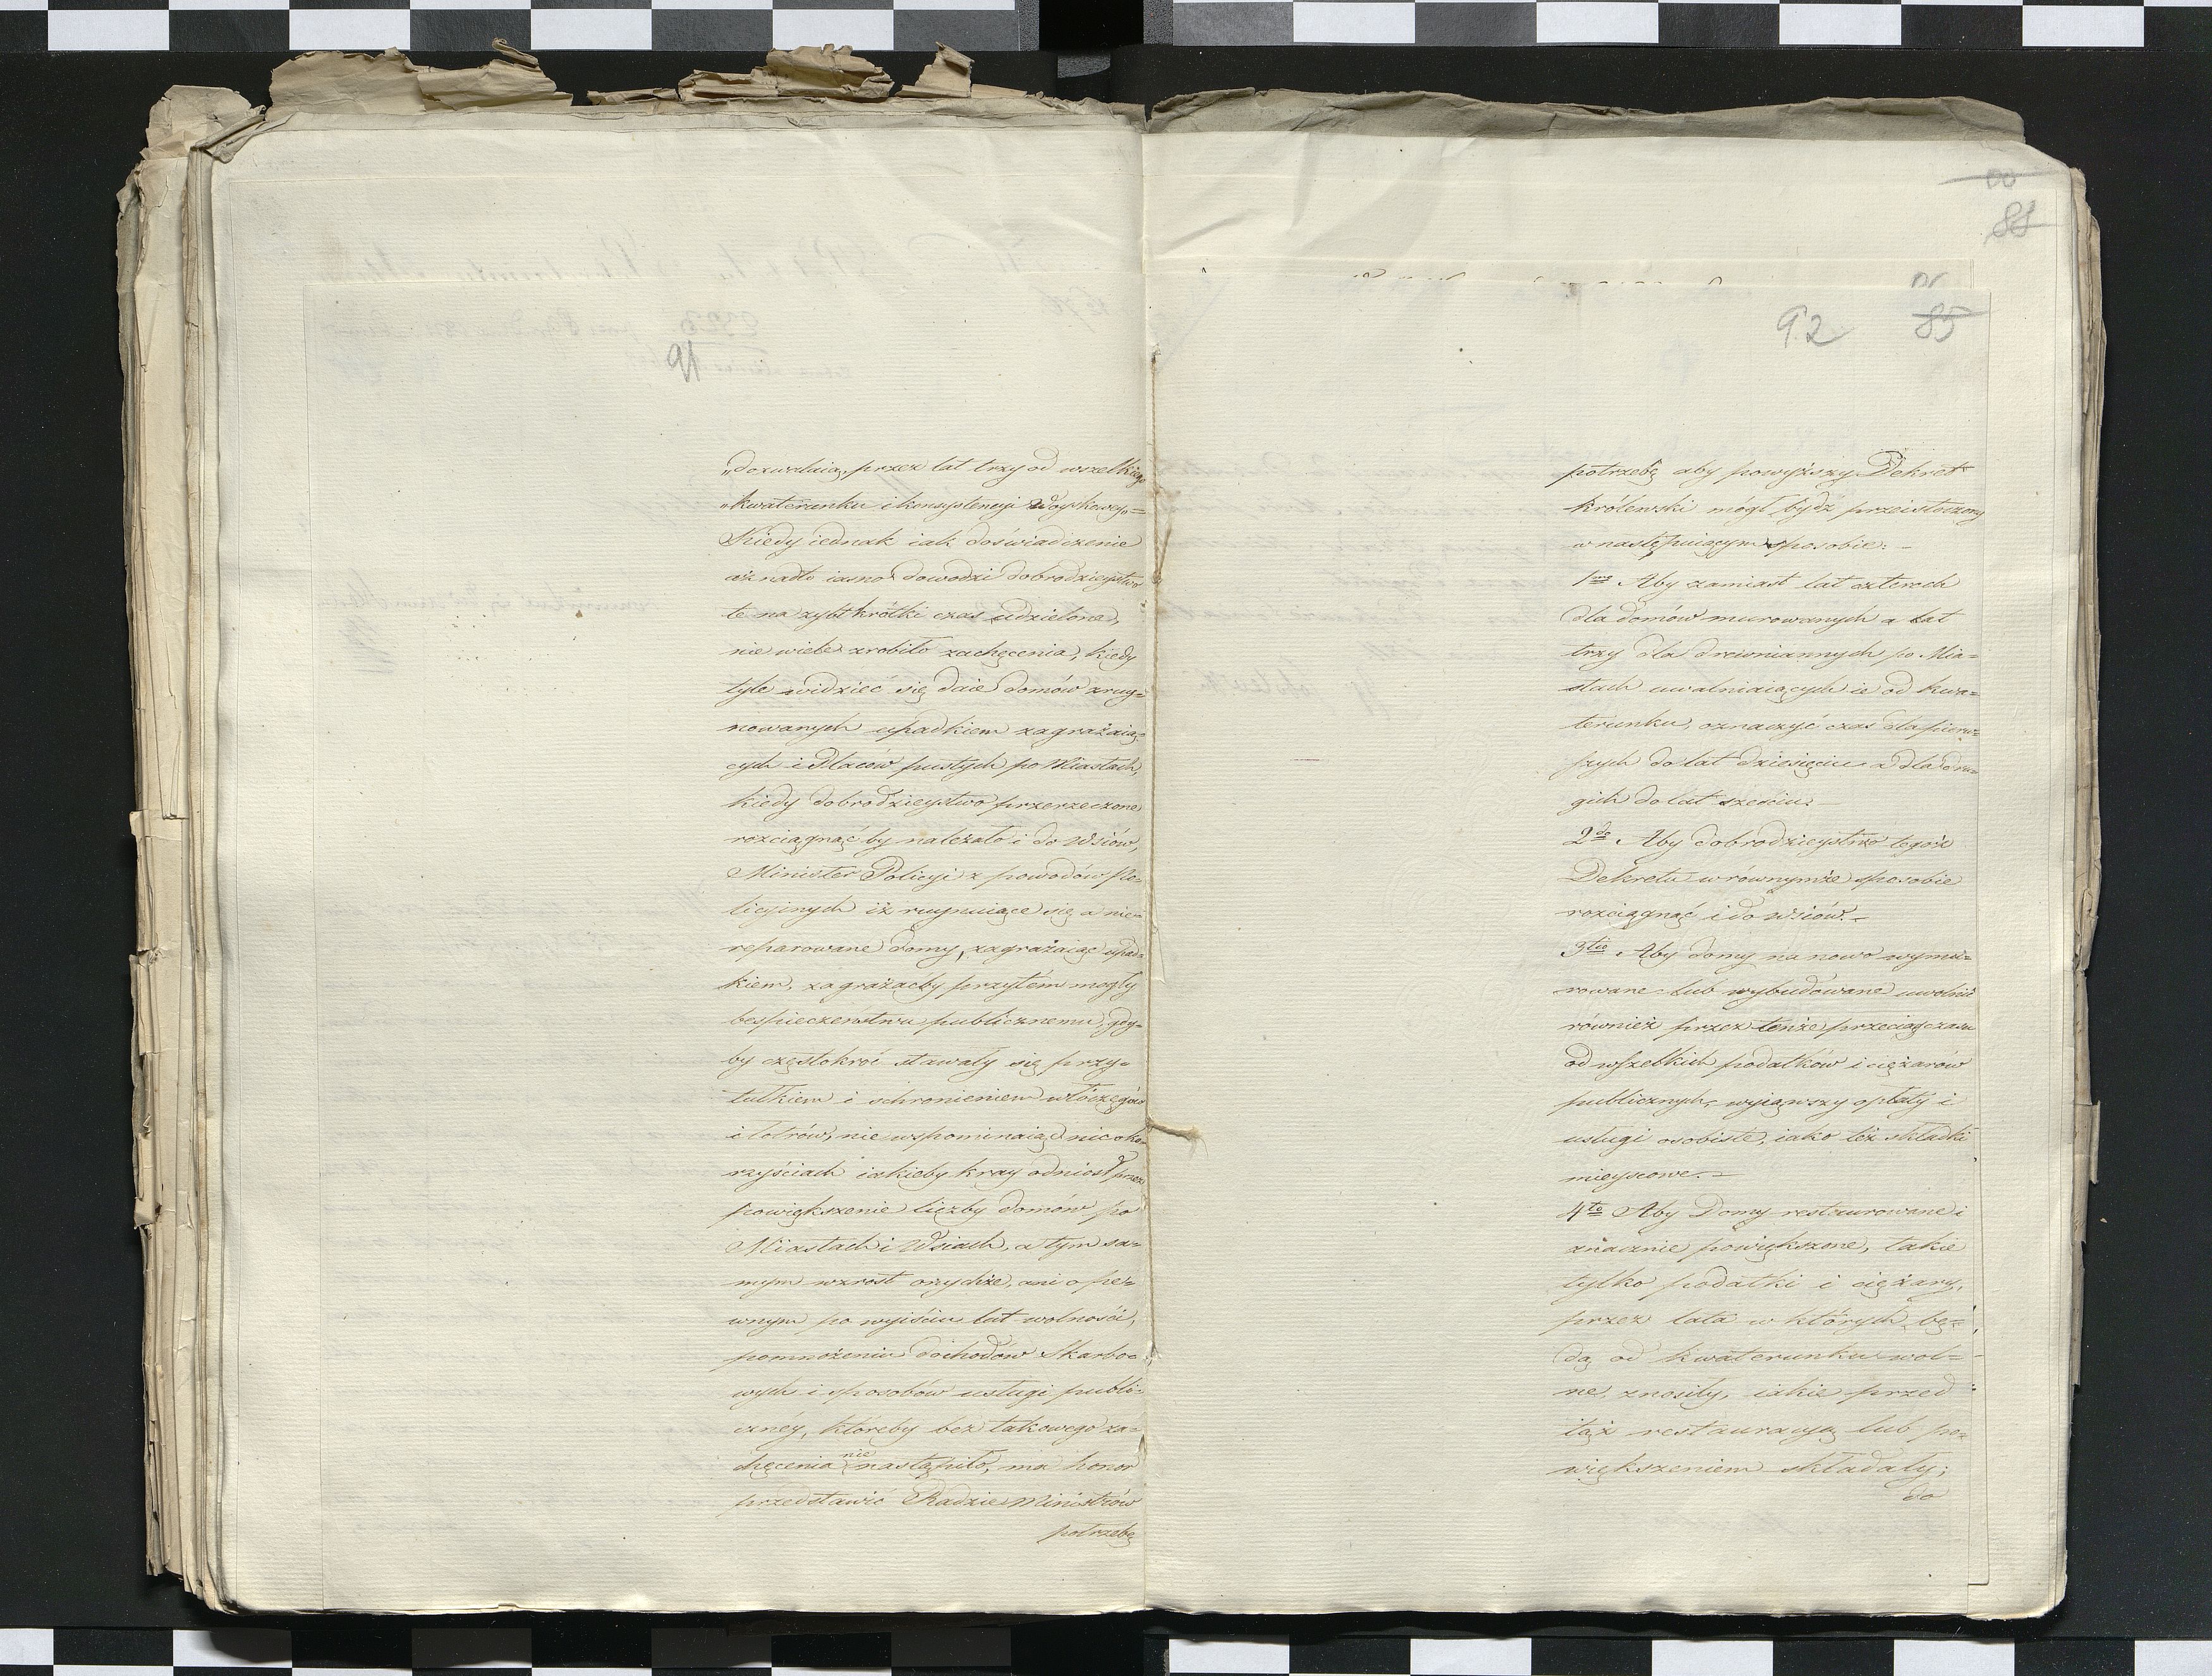 91
„dozwalaią, przez lat trzy od wszelkiego
„kwaterunku i konsystencyi Woyskowey=
Kiedy iednak iak doświadczenie
aż nadto iasno dowodzi dobrodzieystwo
te na zbyt krótki czas udzielone,
nie wiele zrobiło zachęcenia, kiedy
tyle widzieć się daie domów zruy=
nowanych upadkiem zagrażaią=
cych i Placów pustych po Miastach,
kiedy dobrodzieystwo przerzeczone
rozciągnąć by należało i do Wsiów,
Minister Policyi z powodów Po=
licyinych iż ruynuiące się a nie=
reparowane domy, zagrażaiąc upad=
kiem, zagrażaćby przytém mogły
bespieczeństwu publicznemu, gdy=
by częstokroć stawały się przy=
tułkiem i schronieniem włóczęgów
i łotrów, nie wspominaiąc nic o ko=
rzyściach iakieby kray odniosł przez
powiększenie liczby domów po
Miastach i Wsiach, a tym sa=
mym wzrost onychże, ani o pe=
wnym po wyiściu lat wolności,
pomnożeniu dochodów Skarbo=
wych i sposobów usługi publi=
czney, któreby bez takowego za=
chęcenia nie nastąpiło, ma honor
przedstawić Radzie Ministrów
potrzebę
88
92 85
potrzebę aby powyższy Dekret
królewski mógł bydź przeistoczony
w następuiącym sposobie: –
1mo Aby zamiast lat czterech
dla domów murowanych a lat
trzy dla drewniannych po Mia=
stach uwalniaiących ie od kwa=
terunku, oznaczyć czas dla pierw=
szych do lat dziesięciu a dla dru=
gich do lat sześciu.
2do Aby dobrodzieystwo tegoż
Dekretu w równymże sposobie
rozciągnąć i do Wsiów. –
3tio Aby domy na nowo wymu=
rowane lub wybudowane uwolnić
również przez tenże przeciąg czasu
od wszelkich podatków i ciężarów
publicznych, wyiąwszy opłaty i
usługi osobiste, iako też składki
mieyscowe. –
4to Aby Domy restaurowane i
znacznie powiększone, takie
tylko podatki i ciężary,
przez lata w których bę=
dą od kwaterunku wol=
ne, znosiły, iakie przed
tąż restauracyą lub po=
większeniem składały;
do